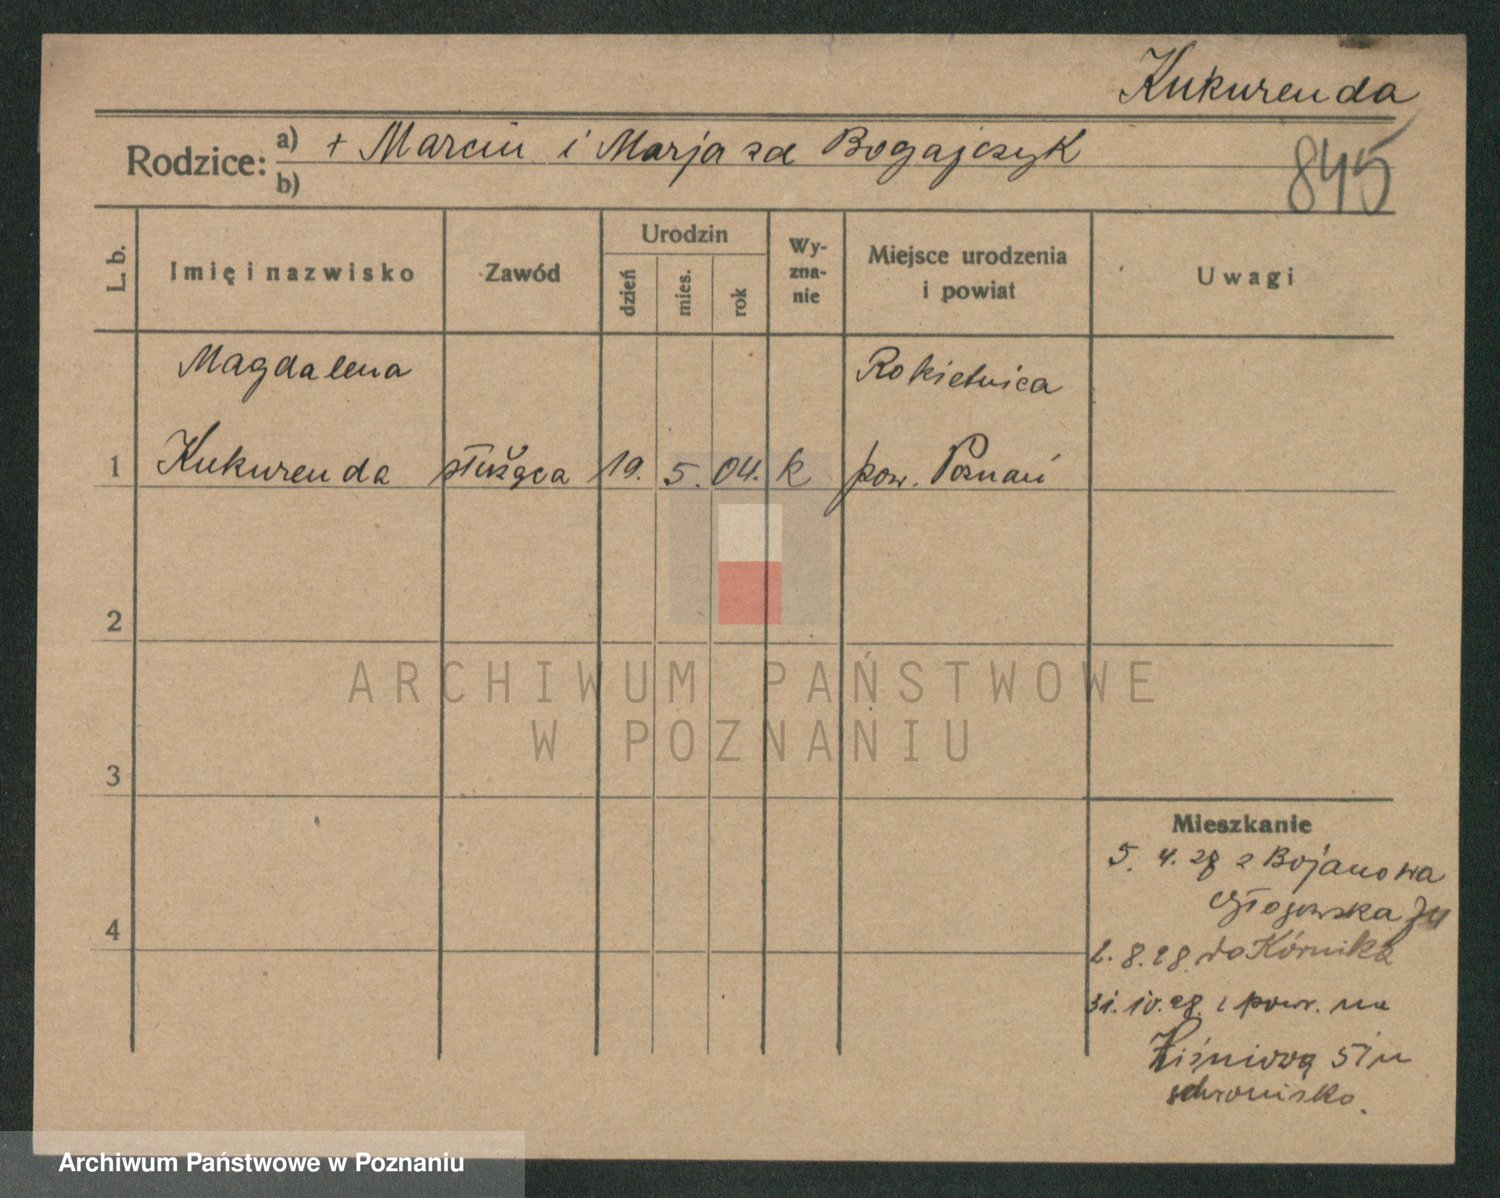 Kukurenda
845
Rodzice: a) + Marcin i Marja zd Bogajczyk
b)
L. b.
Imię i nazwisko
Zawód
Urodzin
dzień
mies.
rok
Wy-
zna-
nie
Miejsce urodzenia
i powiat
Uwagi
Magdalena
Rokietnica
1 Kukurenda służąca 19. 5. 04. k pow. Poznań
2
ARCHIWUM PAŃSTWOWE
W POZNANIU
3
Mieszkanie
5. 4. 28 z Bojanowa
Głogowska
4
2. 8. 28. do Kórnika
31. 10. 28. z powr. na
schronisko.
Archiwum Państwowe w Poznaniu